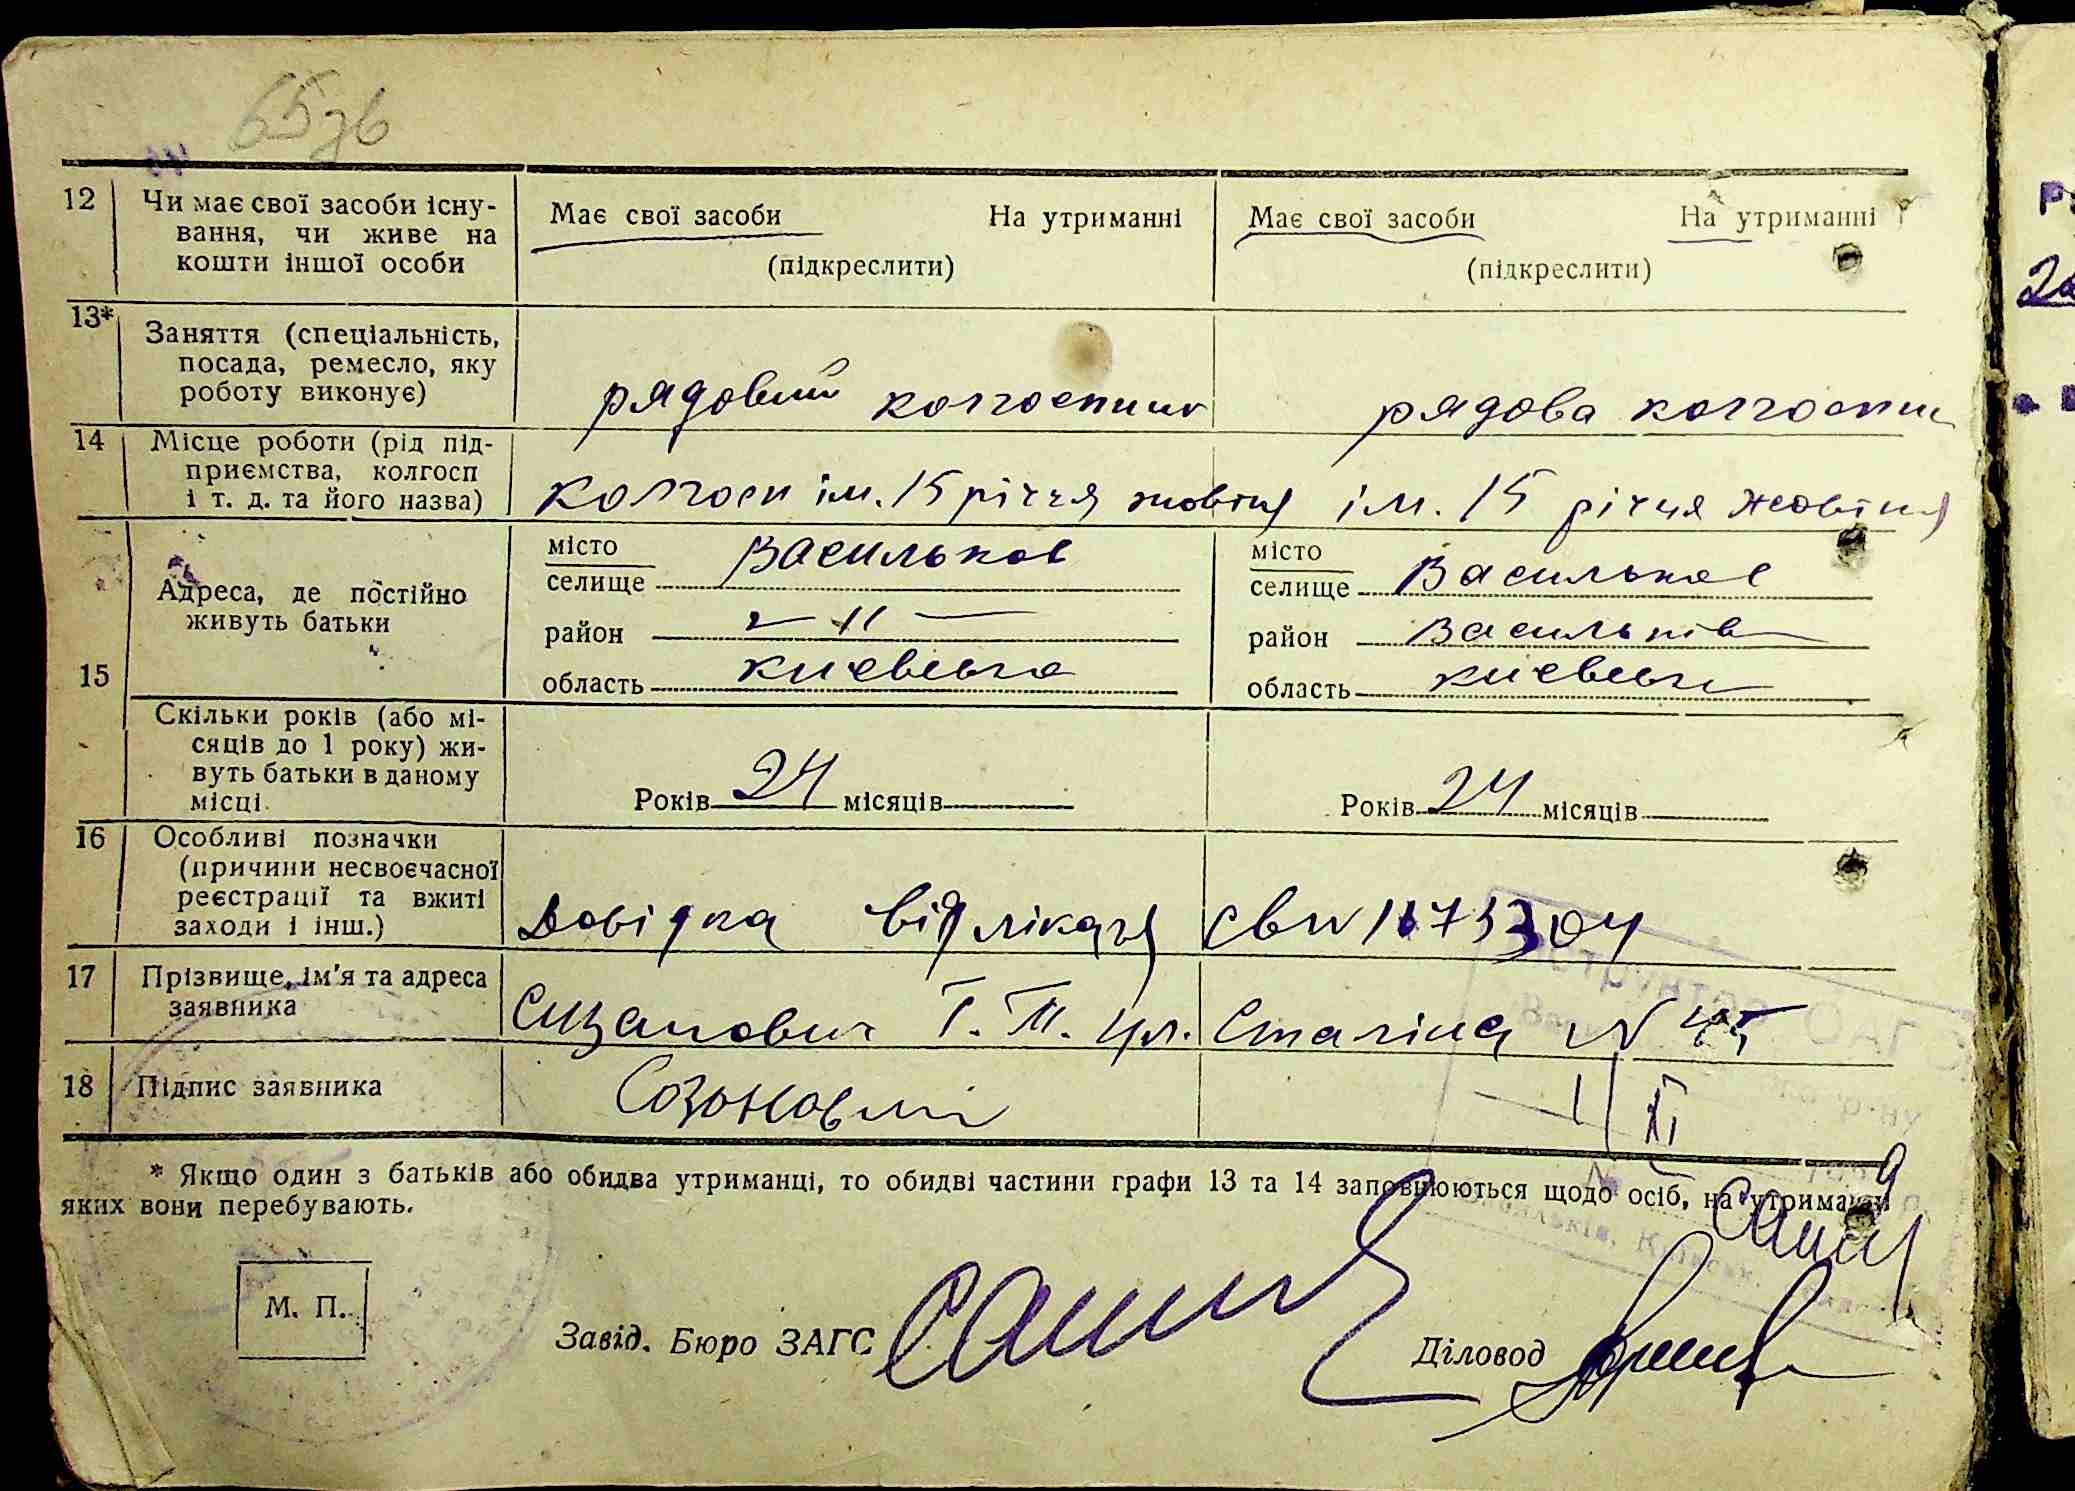 65зв
12 Чи має свої засоби існу-
вання, чи живе на
кошти іншої особи
Має свої засоби На утриманні
(підкреслити)
Має свої засоби На утриманні
(підкреслити)
13* Заняття (спеціальність,
посада, ремесло, яку
роботу виконує)
рядовий колгоспник
рядова колгоспни
14 Місце роботи (рід під-
приємства, колгосп
і т. д. та його назва)
колгосп ім. 15 річчя жовтня
ім. 15 річчя жовтня
15
Адреса, де постійно
живуть батьки
місто
селище Васильков
район — 11 —
область киевська
місто
селище Васильков
район Васильків
область киевськ
Скільки років (або мі-
сяців до 1 року) жи-
вуть батьки в даному
місці
Років 24 місяців
Років 24 місяців
16 Особливі позначки
(причини несвоєчасної
реєстрації та вжиті
заходи і інш.)
Довідка від лікаря
17 Прізвище, ім'я та адреса
заявника
Сизанович Т. М. ул. Сталіна N
18 Підпис заявника
* Якщо один з батьків або обидва утриманці, то обидві частини графи 13 та 14 заповнюються щодо осіб, на утриманні
яких вони перебувають.
М. П.
Завід. Бюро ЗАГС
Діловод